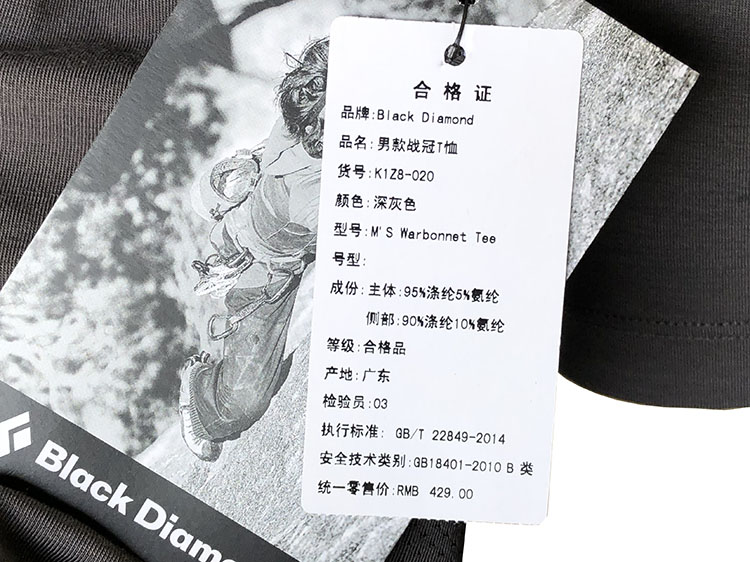 合格证
品牌:Black Diamond
品名:男款战冠T恤
货号:K1Z8-020
颜色:深灰色
型号:M'S Warbonnet Tee
号型:
成份:主体:95%涤纶5%氨纶
侧部:90%涤纶10%氨纶
等级:合格品
产地:广东
检验员:03
执行标准: GB/T 22849-2014
安全技术类别:GB18401-2010 B 类
统一零售价:RMB 429.00
Black Diamo